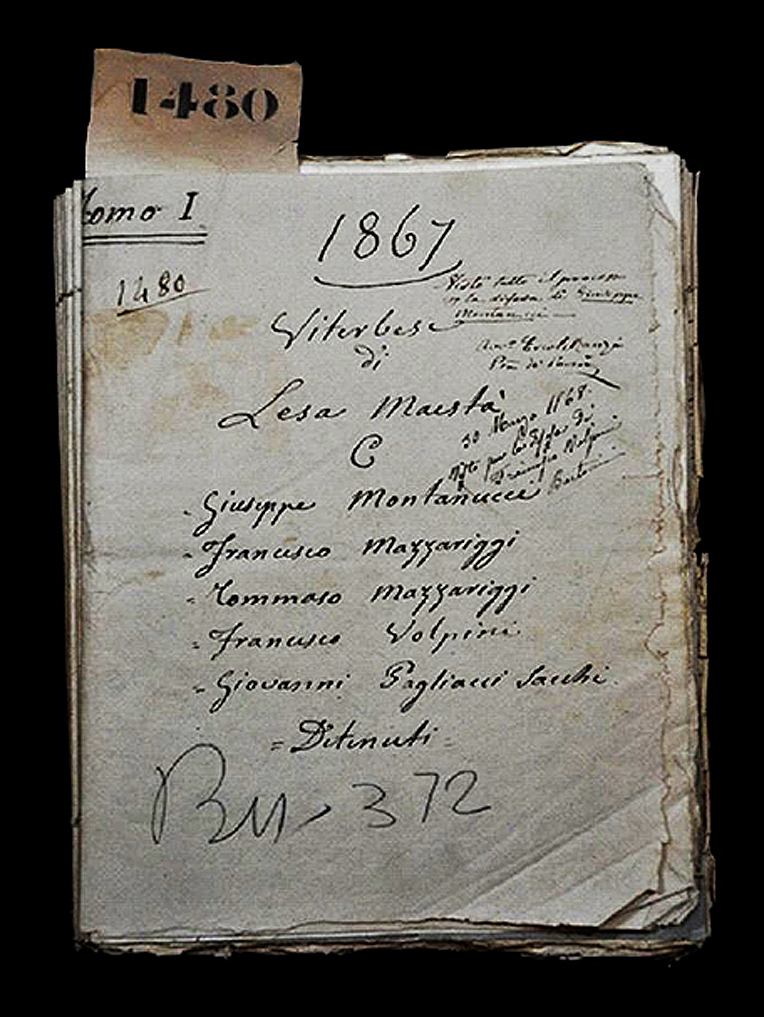 1480
Tomo I
1867
1480
Visto tutto il processo
per la difesa di Giuseppe
Montanucci
Viterbese
di
Lesa Maestà
30 Marzo 1868.
Visto per la difesa di
Francesco Volpini
C
- Giuseppe Montanucci
- Francesco Mazzariggi
- Tommaso Mazzariggi
= Francesco Volpini
- Giovanni Pagliacci Sacchi.
= Ditenuti =
372